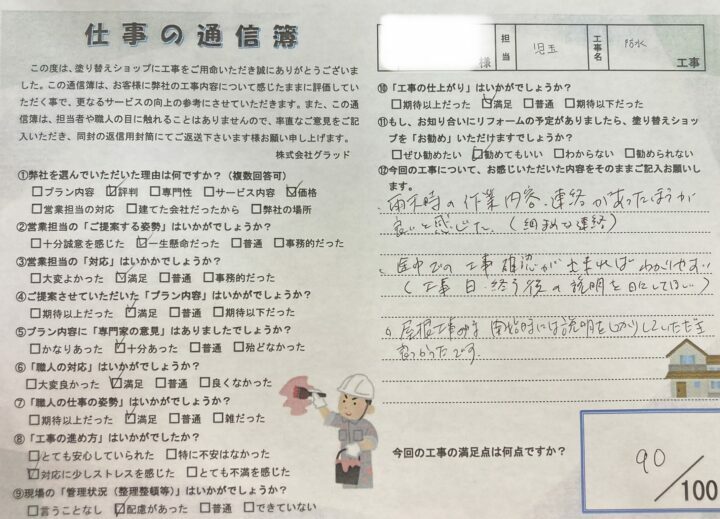 仕事の通信簿
この度は、塗り替えショップに工事をご用命いただき誠にありがとうございま
した。この通信簿は、お客様に弊社の工事内容について感じたままに評価してい
ただく事で、更なるサービスの向上の参考にさせていただきます。また、この通
信簿は、担当者や職人の目に触れることはありませんので、率直なご意見をご記
入いただき、同封の返信用封筒にてご返送下さいます様お願い申し上げます。
株式会社グラッド
①弊社を選んでいただいた理由は何ですか？（複数回答可）
□プラン内容 ☑評判 □専門性 □サービス内容 ☑価格
□営業担当の対応 □建てた会社だったから □弊社の場所
②営業担当の「ご提案する姿勢」はいかがでしょうか？
□十分誠意を感じた ☑一生懸命だった □普通 □事務的だった
③営業担当の「対応」はいかがでしょうか？
□大変よかった ☑満足 □普通 □事務的だった
④ご提案させていただいた「プラン内容」はいかがでしょうか？
□期待以上だった ☑満足 □普通 □期待以下だった
⑤プラン内容に「専門家の意見」はありましたでしょうか？
□かなりあった ☑十分あった □普通 □殆どなかった
⑥「職人の対応」はいかがでしょうか？
□大変良かった ☑満足 □普通 □良くなかった
⑦「職人の仕事の姿勢」はいかがでしょうか？
□期待以上だった ☑満足 □普通 □雑だった
⑧「工事の進め方」はいかがでしたか？
□とても安心していられた □特に不安はなかった
☑対応に少しストレスを感じた □とても不満を感じた
⑨現場の「管理状況（整理整頓等）」はいかがでしょうか？
□言うことなし ☑配慮があった □普通 □できていない
様 担当 児玉 工事名 防水 工事
⑩「工事の仕上がり」はいかがでしょうか？
□期待以上だった ☑満足 □普通 □期待以下だった
⑪もし、お知り合いにリフォームの予定がありましたら、塗り替えショッ
プを「お勧め」いただけますでしょうか？
□ぜひ勧めたい ☑勧めてもいい □わからない □勧められない
⑫今回の工事について、お感じいただいた内容をそのままご記入お願いし
ます。
・雨天時の作業内容、連絡があったほうが
良いと感じた。（細まめな連絡）
・途中での工事確認が出来ればわかりやすい
（工事日・終う後の説明を目にしてほしい）
。屋根工事 開始時には説明をしっかりしていただき
良かったです。
今回の工事の満足点は何点ですか？
90／100